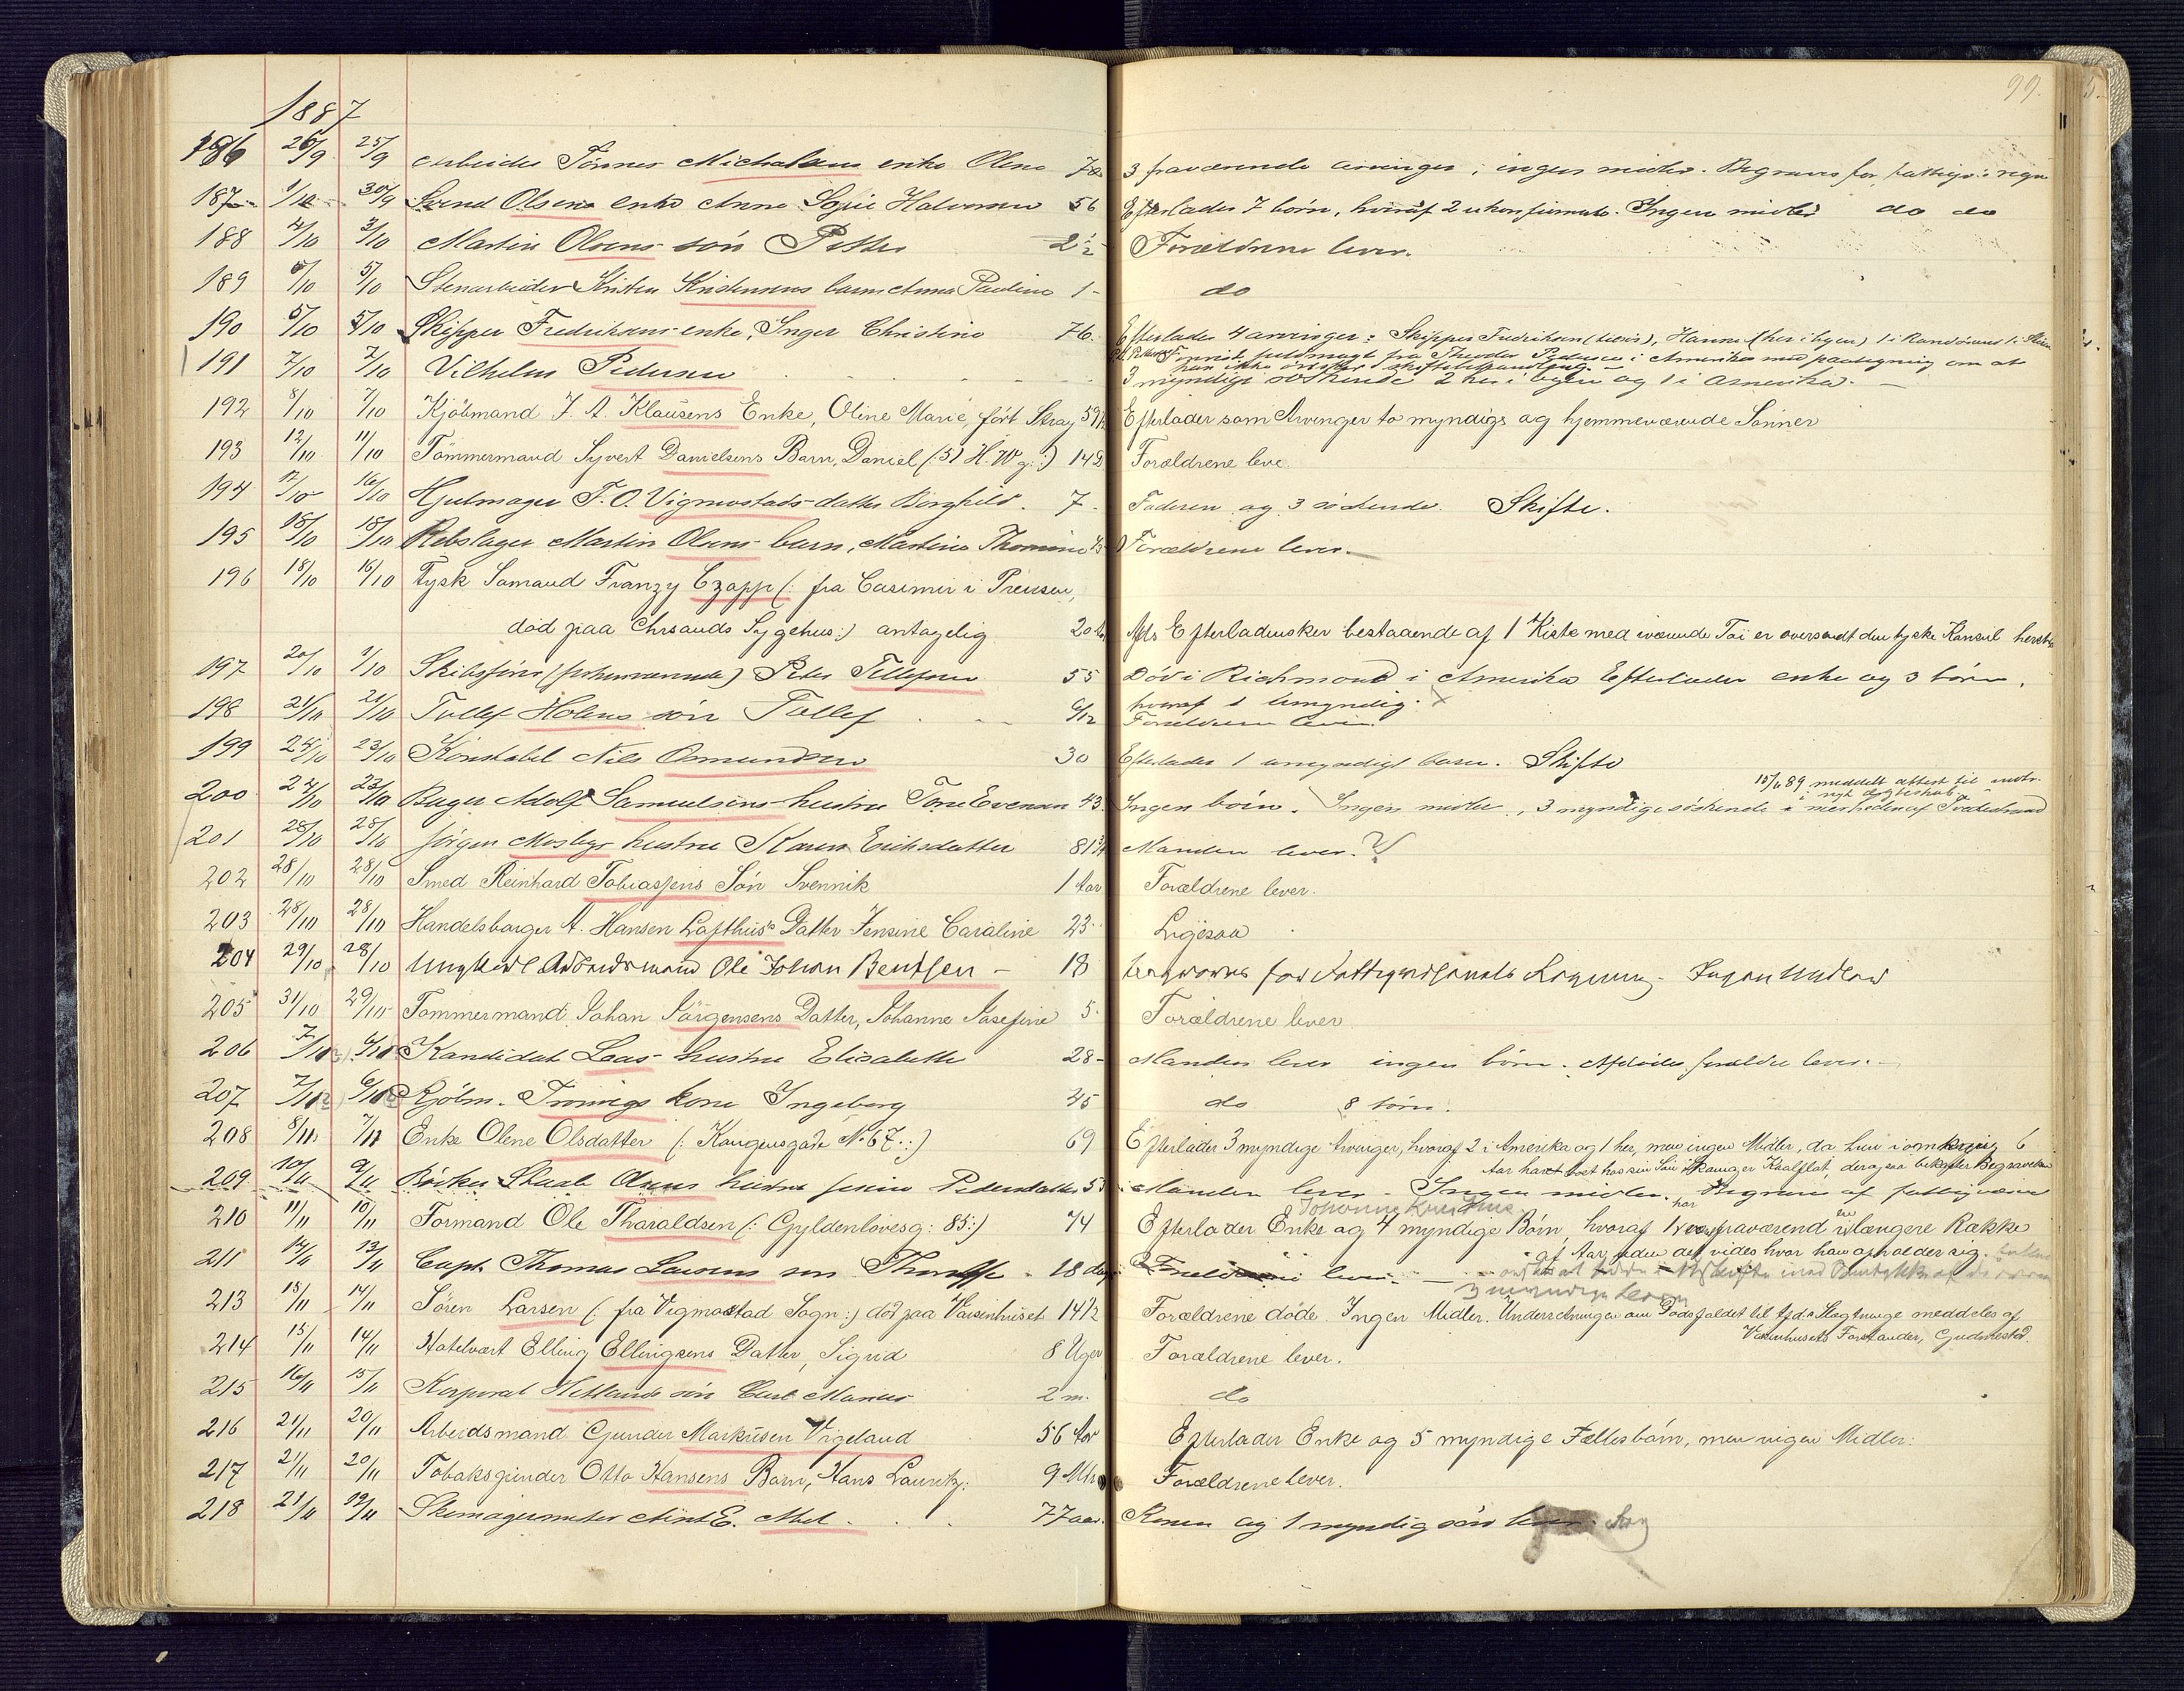 99.
1887
186 26/9 25/9 Arbeider Tönnes Michalsens enke Olene 78 3 fraværende arvinger, ingen midler. Begraves for fattigv: regn
187 1/10 30/9 Svend Olsens enke Anne Sofie Halvorsen 56 Efterlader 7 börn, hvoraf 2 ukonfirmerte. Ingen midler do do
188 4/10 3/10 Martin Olsens sön Petter 2½ Forældrene lever.
189 6/10 5/10 Stenarbeider Kristen Kristensens barn Anna Pauline 1 - do
190 6/10 5/10 Skipper Fredriksens enke, Inger Christine 76. Efterlader 4 arvinger: Skipper Fredriksen, Hanne (her i byen) 1 i Randösund 1 i
fuldmagt fra Theodor Pedersen i Amerika med paategning om at
han ikke önsker skiftebehandling. -
191 7/10 7/10 Vilhelm Pedersen 3 myndige söskende 2 her i byen og 1 i Amerika. -
192 8/10 7/10 Kjöbmand J. A. Klausens Enke, Oline Marie, fört Stray 59½ Efterlader som Arvinger to myndige og hjemmeværende Sönner
193 12/10 11/10 Tömmermand Syvert Danielsens Barn, Daniel (: 51 H. W g. :) 14 D Forældrene leve.
194 17/10 16/10 Hjulmager T. O. Vigmostads datter Borghild. 7 - Faderen og 3 söskende. Skifte.
195 18/10 18/10 Rebslager Martin Olsens barn, Martine Thomine Forældrene lever. -
196 18/10 16/10 Tysk Sömand Franzy Czapp (: fra Casimir i Preusen,
död paa Chrsands Sygehus :) antagelig 20 Afds Efterladensker bestaaende af 1 Kiste med iværende Töi er oversendt den tyske Konsul herst
197 20/10 1/10 Skibsförer Peter Tellefsen 55 Död i Richmond i Amerika Efterlader enke og 3 börn,
hvoraf 1 umyndig. x
198 21/10 21/10 Tellef Holens sön Tellef 6/12 Forældrene lever.
199 24/10 23/10 Konstabel Nils Omundsen 30 Efterlader 1 umyndigt barn. Skifte
15/6 89 meddelt attest til indtr.
i nyt ægteskab. -
200 24/10 23/10 Bager Adolf Samuelsens hustru Tone Evensen 43. Ingen börn. Ingen midler, 3 myndige söskende i nærheden af Tvedestrand
201 28/10 28/10 Jörgen Mosbys hustru Karen Eriksdatter 81¾ Manden lever. ?
202 28/10 28/10 Smed Reinhard Tobiassens Sön Svennik 1 Aar Forældrene lever.
203 28/10 28/10 Handelsborger A. Hansen Lofthus's Datter Jensine Caroline 23. Ligesaa
204 29/10 28/10 Ungkarl Arbeidsmand Ole Johan Bentsen - 18 begraves for Fattigvæsenets Regning - Ingen Midler
205 31/10 29/10 Tömmermand Johan Jörgensens Datter, Johanne Josefine 5. Forældrene lever.
206 7/11 6/11 Kandidat Laas hustru Elisabeth 28 - Manden lever ingen börn. Afdödes forældre lever. -
207 7/11 6/11 Kjöbm. Trönigs kone Ingeborg 45 do 8 börn.
208 8/11 7/11 Enke Olene Olsdatter (: Kongensgade No 67. :) 69 Efterlader 3 myndige Arvinger, hvoraf 2 i Amerika og 1 her, men ingen Midler, da hun i omkring 6
Aar har været hos sin Sön, Skomager Kaalflot, der ogsaa bekoster Begravelsen
209 10/11 9/11 Böcker Olsens hustru Pedersdatter 5 Manden lever - Ingen midler. Begraves af fattigvæsen
Johanne
210 11/11 10/11 Formand Ole Tharaldsen (: Gyldenlövesg: 85 :) 74 Efterlader Enke og 4 myndige Börn, hvoraf 1 har været fraværende i en længere Række
af Aar, uden at det vides hvor han opholder sig.
211 14/11 13/11 Capt. Thomas Larsens sön 18 dage Forældrene lever -
3 myndige
213 15/11 14/11 Sören Larsen (: fra Vigmostad Sogn :) död paa Vaisenhuset 14½ Forældrene döde. Ingen Midler. Underretningen om Dödsfaldet til Afd's Slægtninge meddeles af
Vaisenhusets Forstander, Gudmestad.
214 15/11 14/11 Hotelvært Elling Ellingsens Datter, Sigrid 8 Uger Forældrene lever.
215 16/11 15/11 Korporal Hetlands sön Curt Marius 2 m. do
216 21/11 20/11 Arbeidsmand Gunder Markusen Vigeland 56 Aar Efterlader Enke og 5 myndige Fællesbörn, men ingen Midler.
217 21/11 20/11 Tobaksspinder Otto Hansens Barn, Hans Lauritz. 9 Mdr Forældrene lever.
218 21/11 19/11 Skomagermester Arnt E. Abel 77 aar. Konen og 1 myndig sön lever.